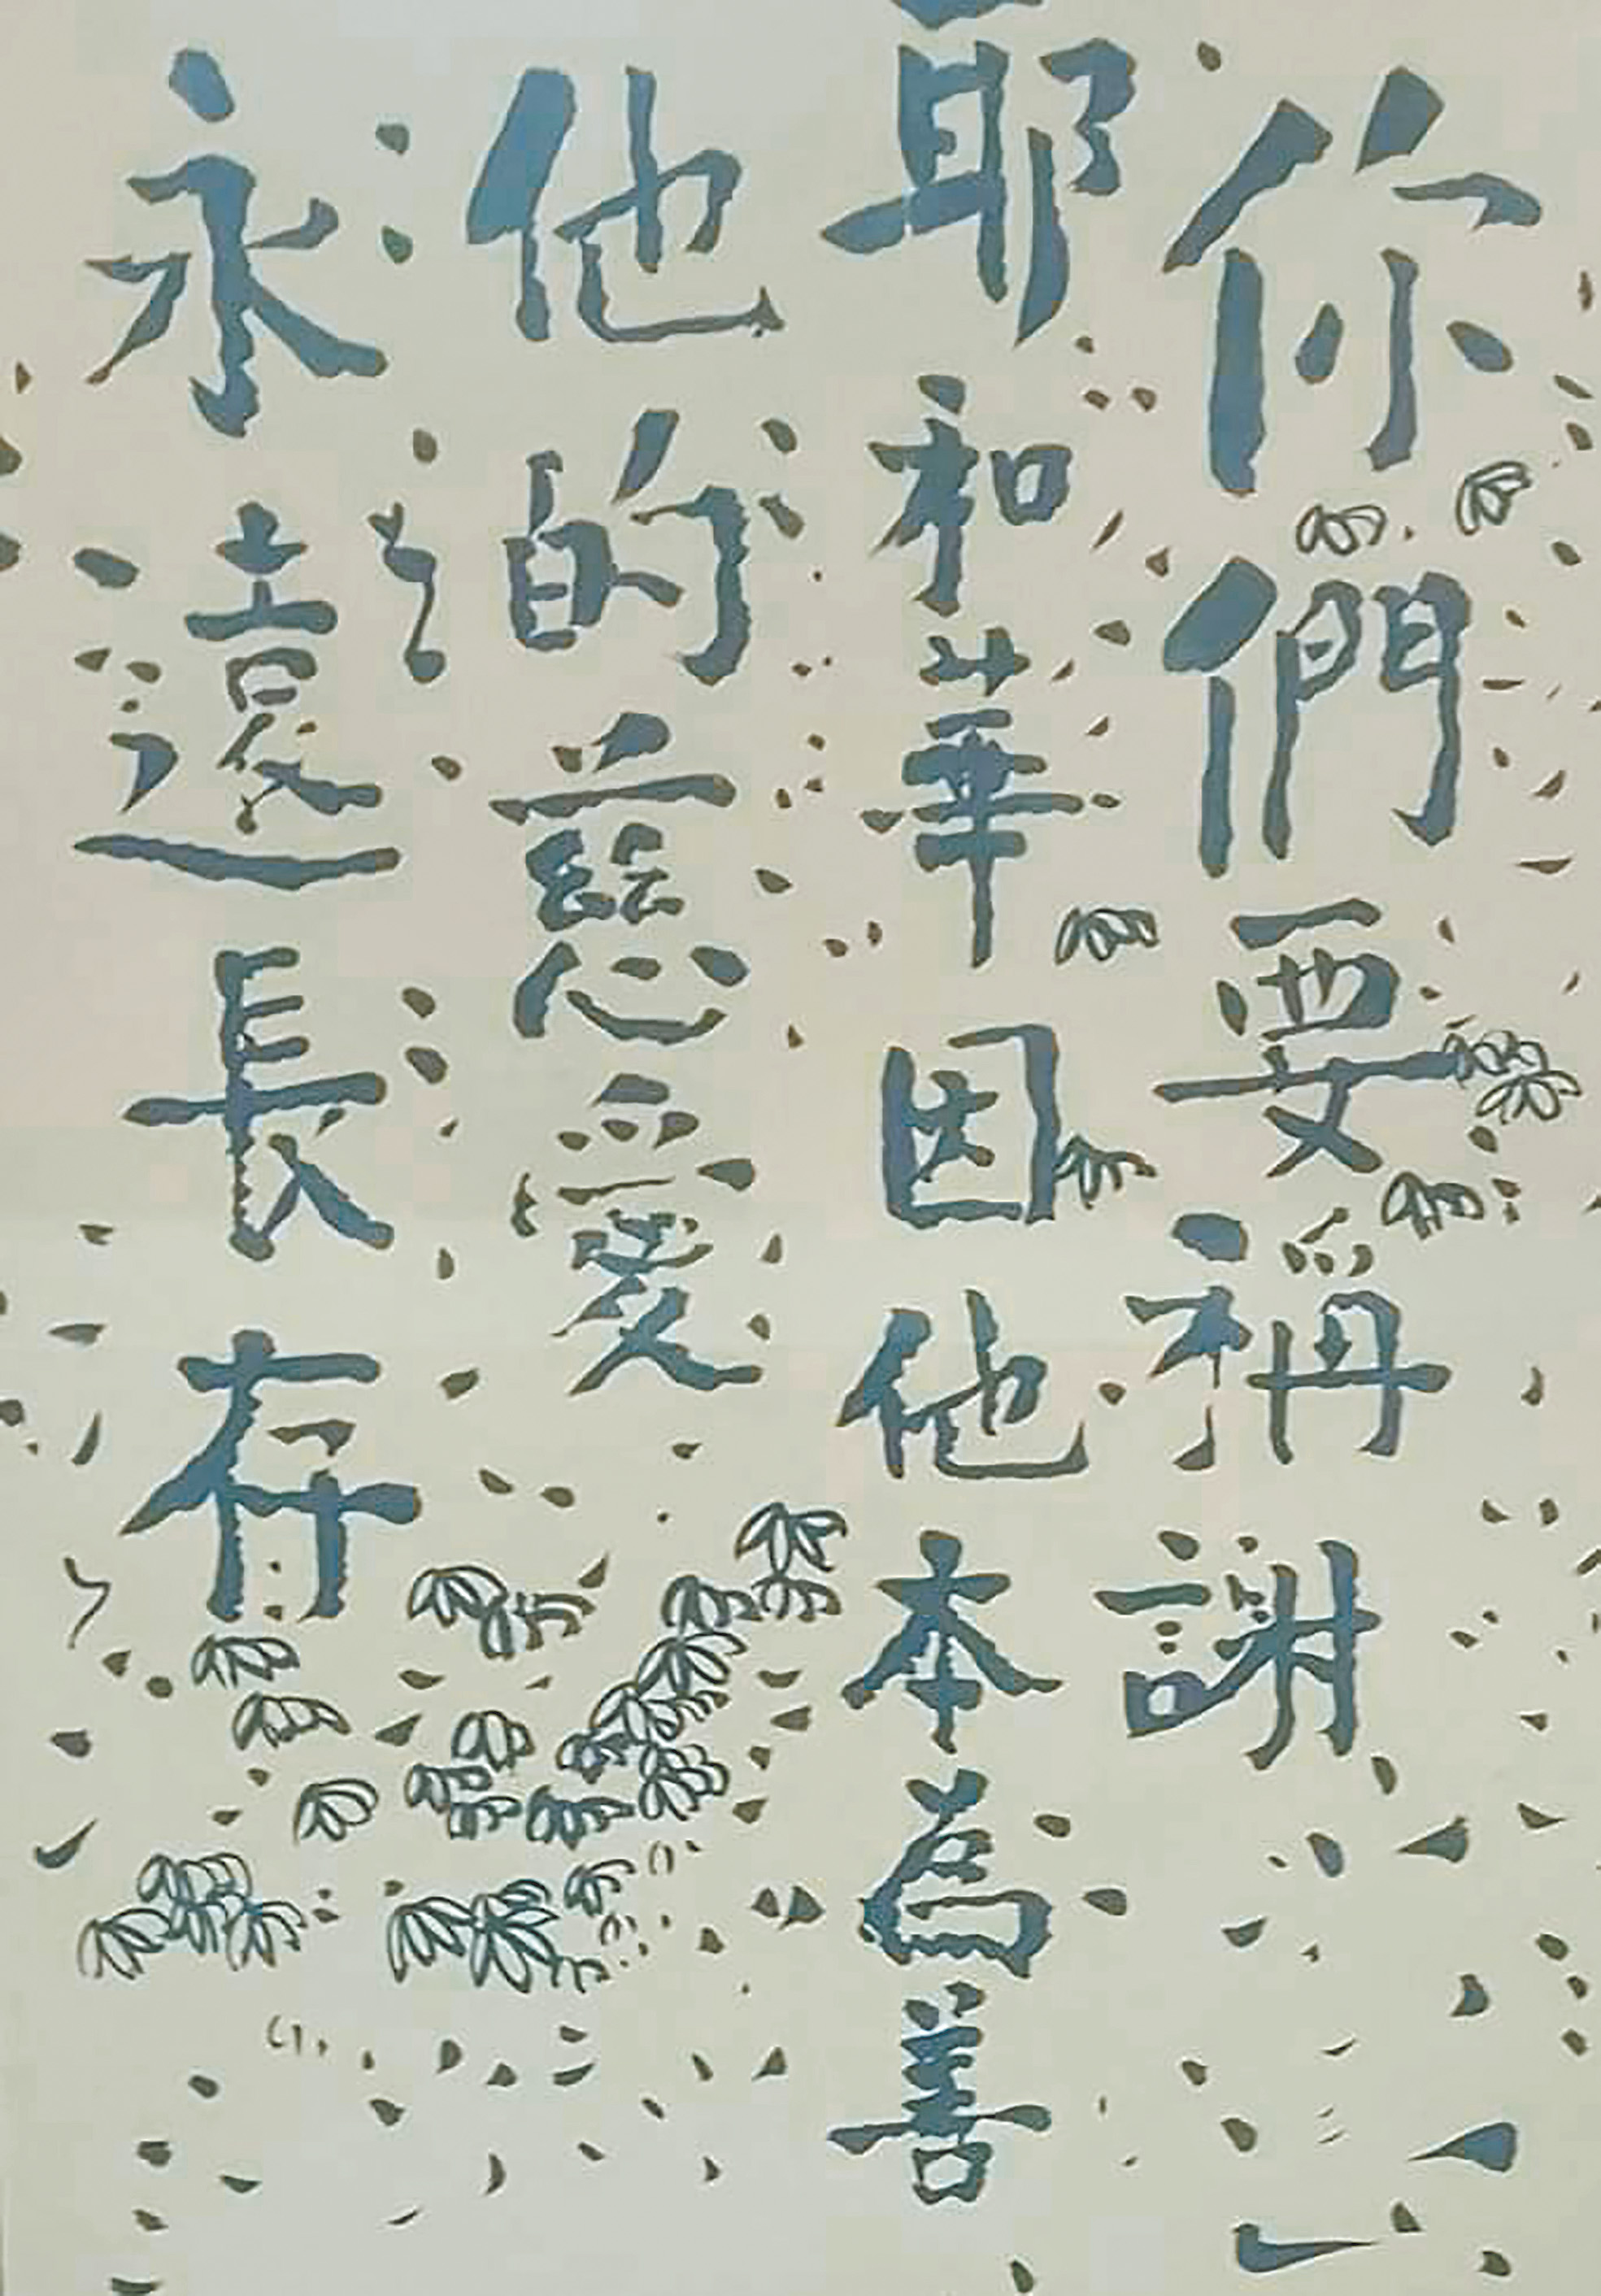 你們要稱謝
耶和華因他本為善
他的慈愛
永遠長存